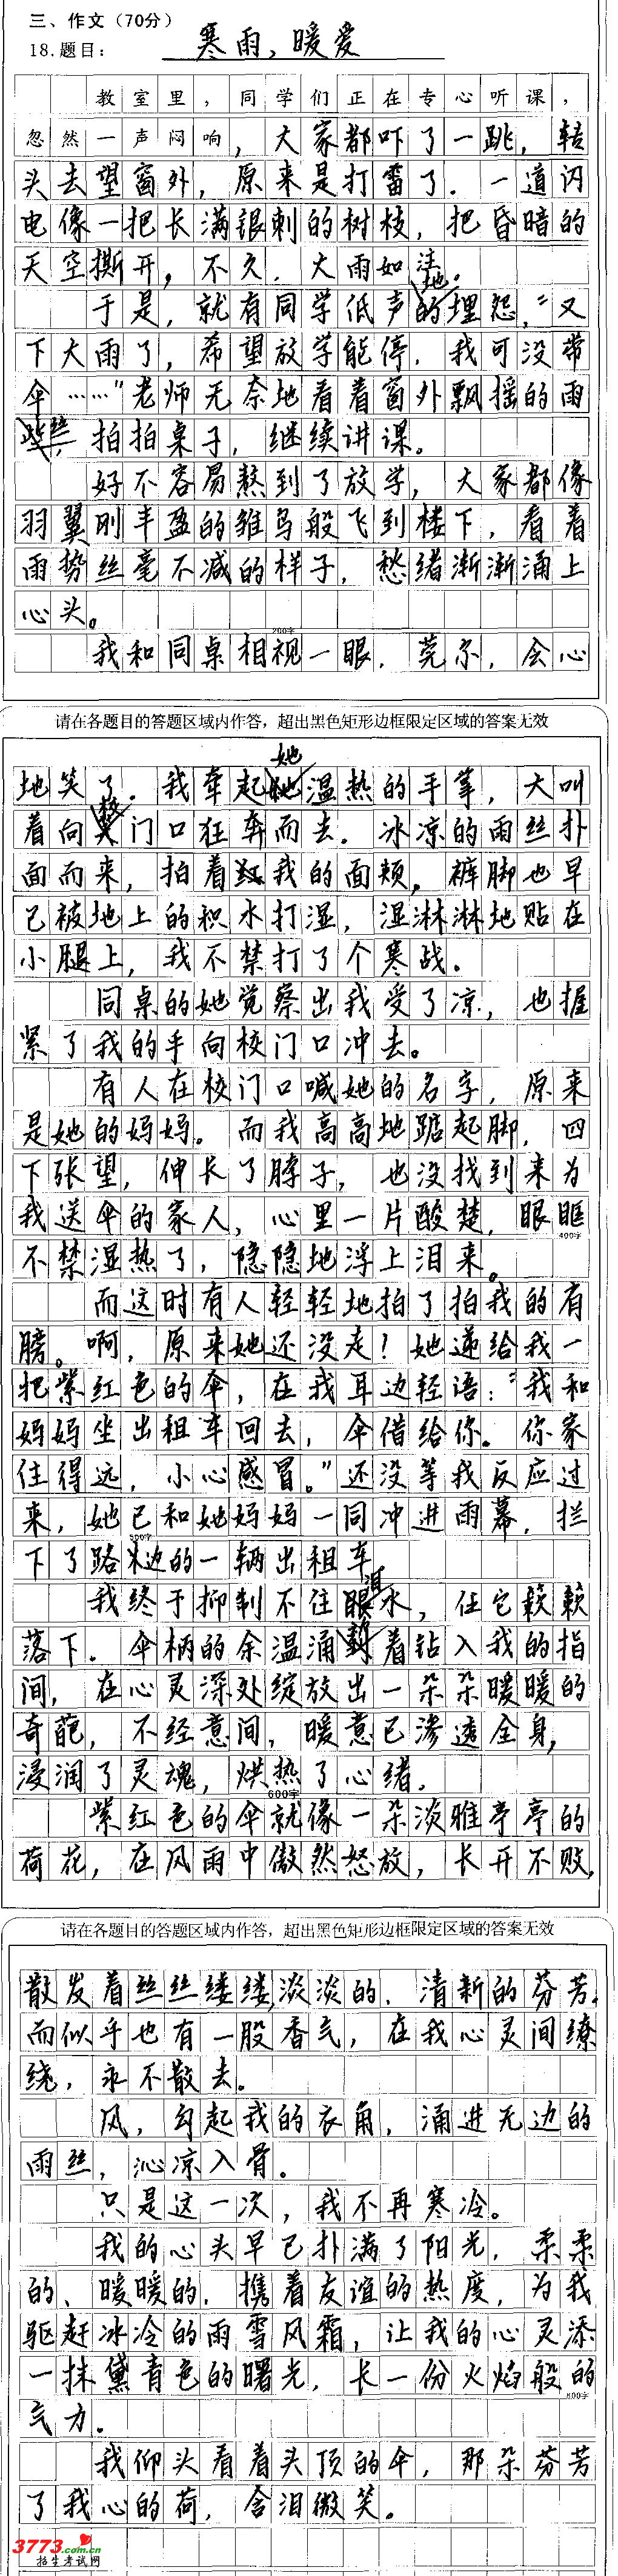 三、作文（70分）
18.题目： 寒雨，暖爱
教室里，同学们正在专心听课，
忽然一声闷响，大家都吓了一跳，转
头去望窗外，原来是打雷了。一道闪
电像一把长满银刺的树枝，把昏暗的
天空撕开，不久，大雨如注。
于是，就有同学低声地埋怨，“又
下大雨了，希望放学能停，我可没带
伞……”老师无奈地看着窗外飘摇的雨
丝，拍拍桌子，继续讲课。
好不容易熬到了放学，大家都像
羽翼刚丰盈的雏鸟般飞到楼下，看着
雨势丝毫不减的样子，愁绪渐渐涌上
心头。
200字
我和同桌相视一眼，莞尔，会心
请在各题目的答题区域内作答，超出黑色矩形边框限定区域的答案无效
地笑了。我牵起她温热的手掌，大叫
着向校门口狂奔而去。冰凉的雨丝扑
面而来，拍着我的面颊，裤脚也早
已被地上的积水打湿，湿淋淋地贴在
小腿上，我不禁打了个寒战。
同桌的她觉察出我受了凉，也握
紧了我的手向校门口冲去。
有人在校门口喊她的名字，原来
是她的妈妈。而我高高地踮起脚，四
下张望，伸长了脖子，也没找到来为
我送伞的家人，心里一片酸楚，眼眶
400字
不禁湿热了，隐隐地浮上泪来。
而这时有人轻轻地拍了拍我的肩
膀。啊，原来她还没走！她递给我一
把紫红色的伞，在我耳边轻语：“我和
妈妈坐出租车回去，伞借给你。你家
住得远，小心感冒。”还没等我反应过
来，她已和她妈妈一同冲进雨幕，拦
500字
下了路边的一辆出租车。
我终于抑制不住泪水，任它簌簌
落下。伞柄的余温涌动着钻入我的指
间，在心灵深处绽放出一朵朵暖暖的
奇葩，不经意间，暖意已渗透全身，
浸润了灵魂，烘热了心绪。
600字
紫红色的伞就像一朵淡雅亭亭的
荷花，在风雨中傲然怒放，长开不败，
请在各题目的答题区域内作答，超出黑色矩形边框限定区域的答案无效
散发着丝丝缕缕，淡淡的、清新的芬芳。
而似乎也有一股香气，在我心灵间缭
绕，永不散去。
风，勾起我的衣角，涌进无边的
雨丝，沁凉入骨。
只是这一次，我不再寒冷。
我的心头早已扑满了阳光，柔柔
的、暖暖的，携着友谊的热度，为我
驱赶冰冷的雨雪风霜，让我的心灵添
一抹黛青色的曙光，长一份火焰般的
800字
气力。
我仰头看着头顶的伞，那朵芬芳
了我心的荷，含泪微笑。
3773.com.cn
招生考试网